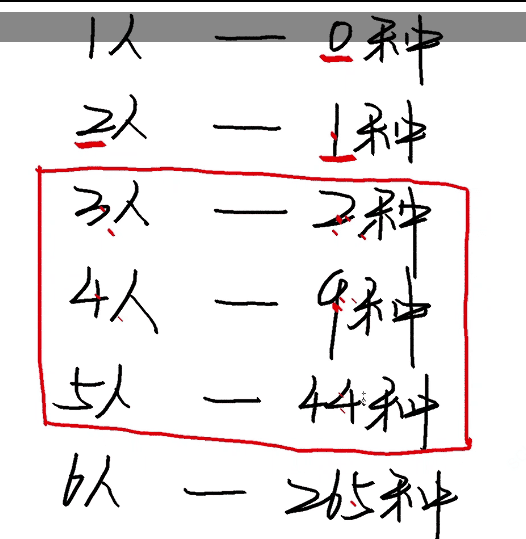 1人 — 0种
2人 — 1种
3人 — 2种
4人 — 9种
5人 — 44种
6人 — 265种